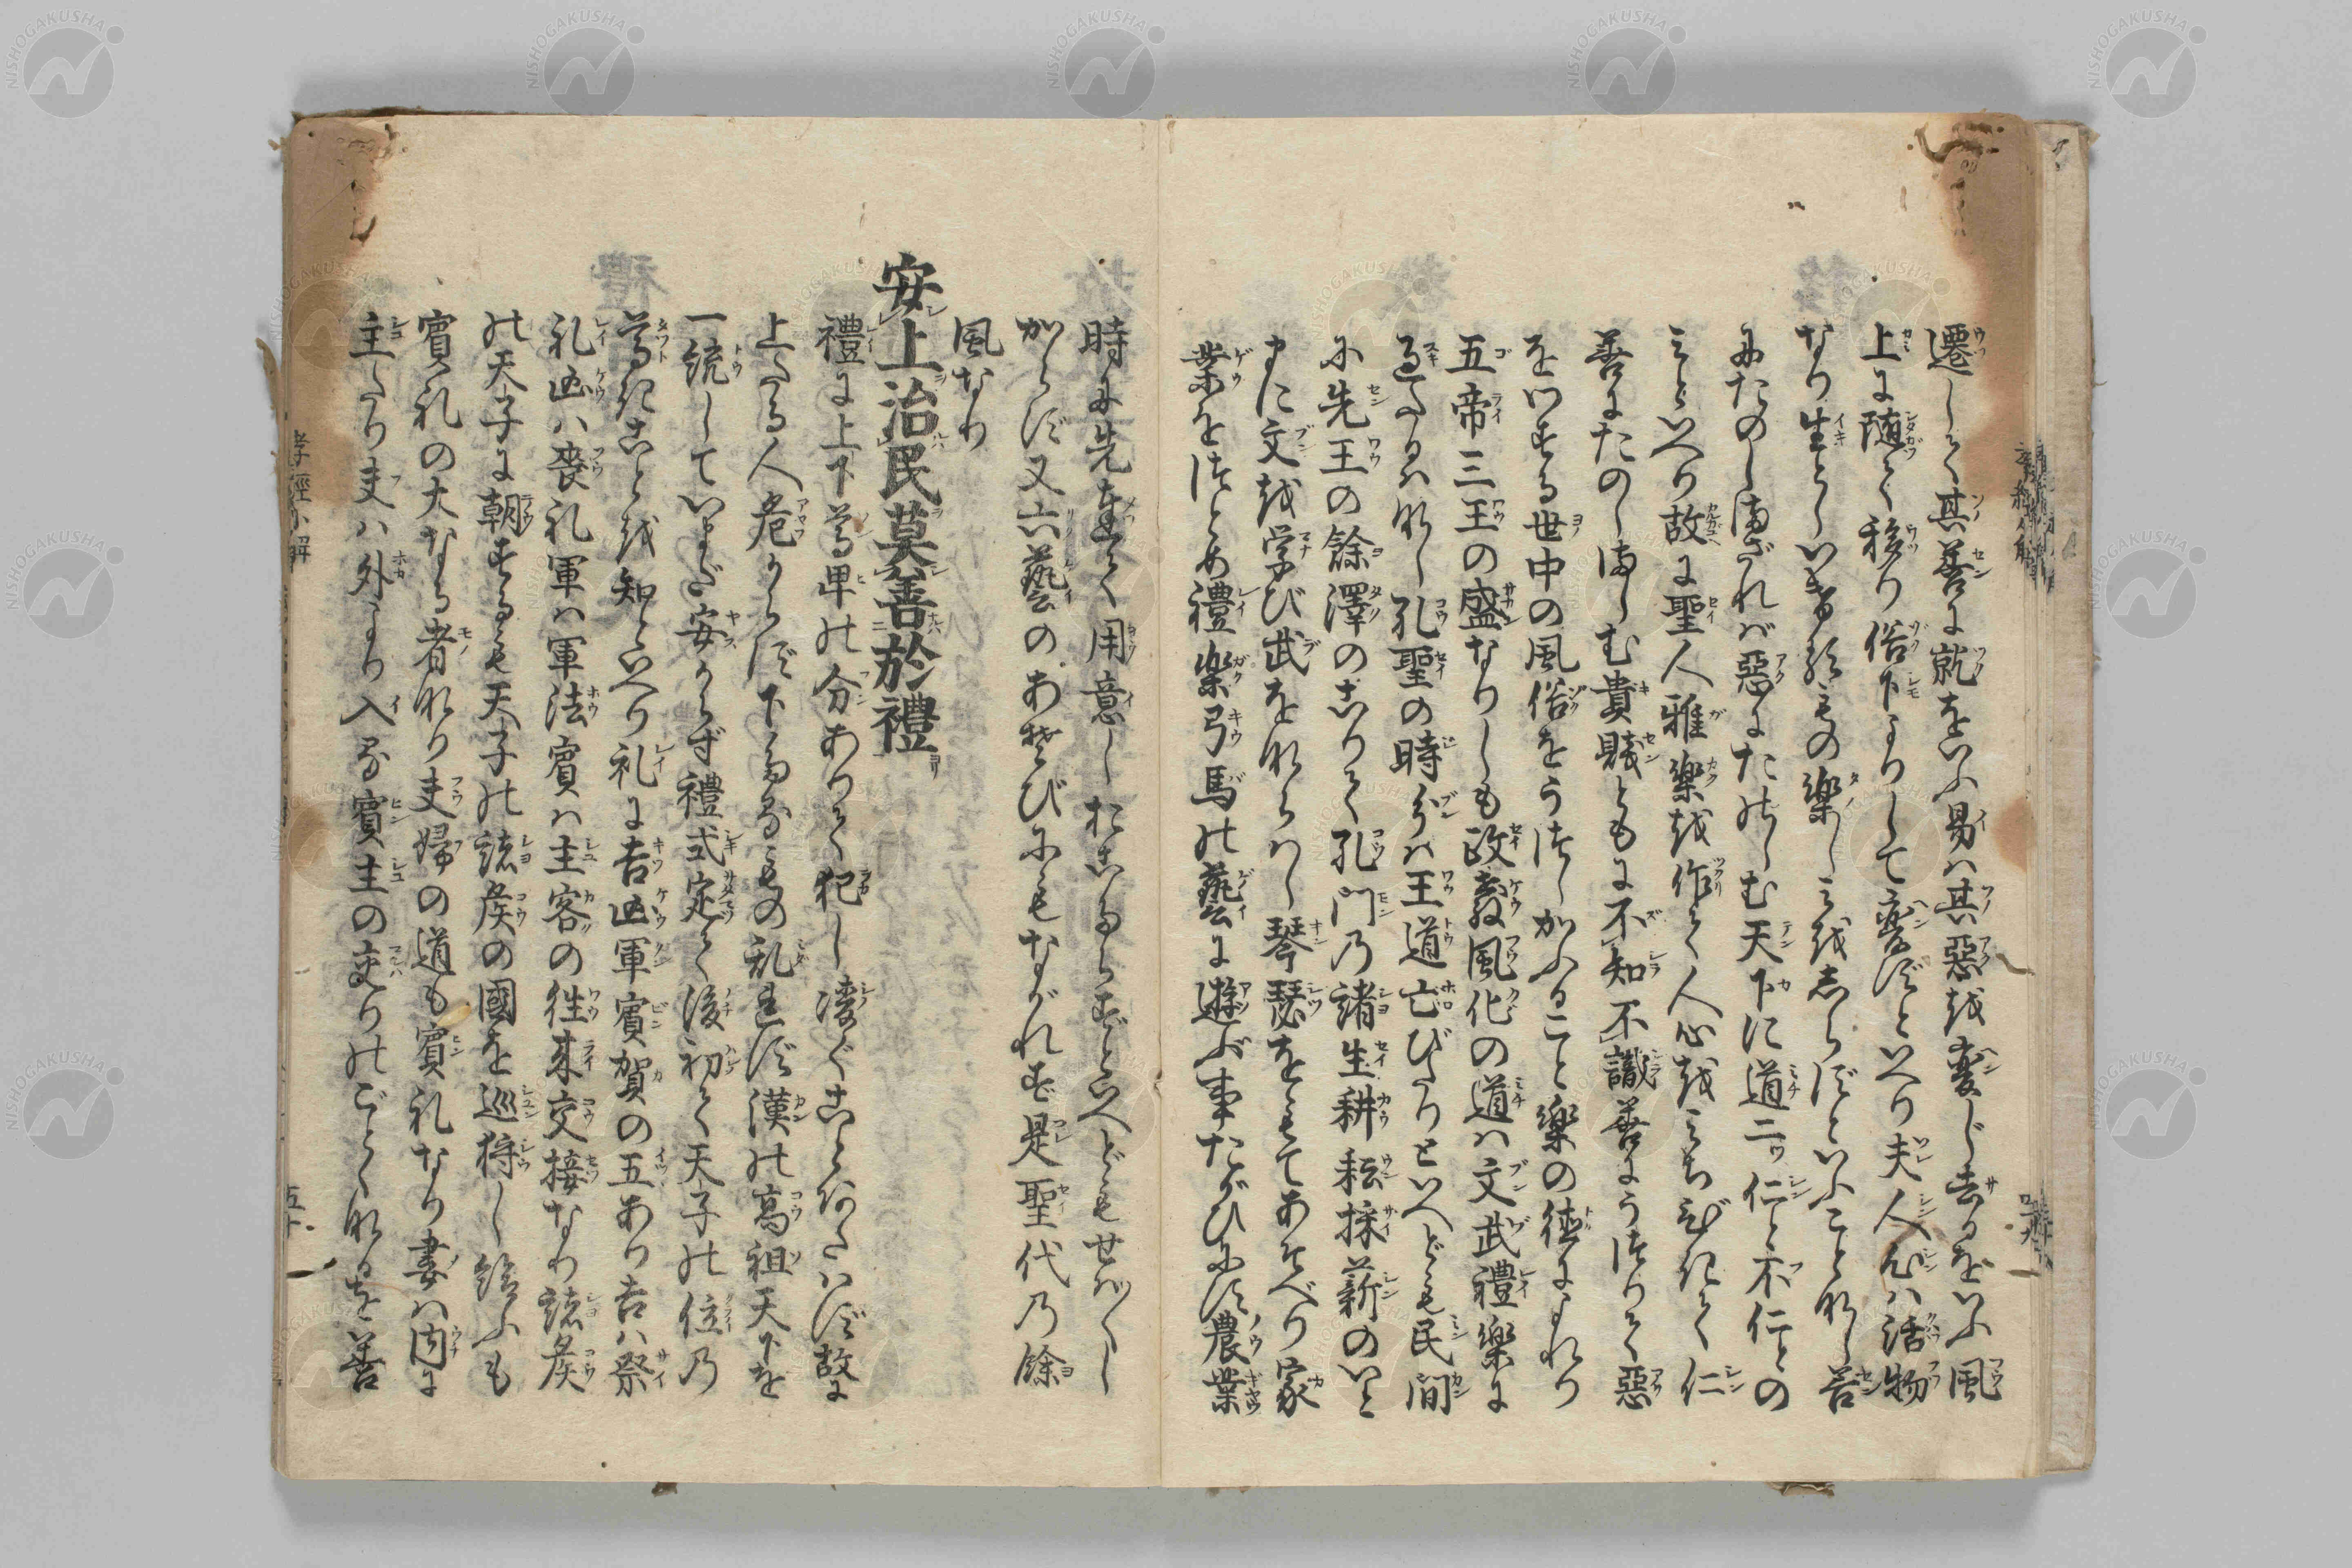 遷して其善に就をいふ易は其惡を変じ去るをいふ風
上に随て移り俗下よりして変ずといへり夫人心は活物
なり生としいけるもの楽しみを志らずといふこと
なし善
にたのしまざれば惡にたのしむ天下に道二ツ仁と不仁との
みといへり故に聖人雅楽を作て人心をみちびきて仁
善にたのしましむ貴賤ともに不知不識善にうつりて惡
をいとする世中の風俗をうつしかふること楽の徳によれり
五帝三王の盛なりしも政教風化の道は文武禮楽に
過たるはなし孔聖の時分は王道亡びたりといへども民間
に先王の餘澤のこりて孔門乃諸生耕耘採薪のいと
まに文を学び武をならはし琴瑟をもてあそべり家
業をつとめ禮楽弓馬の藝に遊ぶ事たがひにす農業
時に先達て用意しおこたらずといへどもせはしく
からず又六藝のあそびにもながれず是聖代乃餘
風なり
安上治民莫善於禮
禮に上下尊卑の分ありて犯し凌ぐことあたはず故に
上たる人危からず下たるもの乱れず漢の高祖天下を
一統していまだ安からず禮式定て後初て天子の位乃
尊きことを知といへり礼に吉凶軍賓賀の五あり吉は祭
礼凶は喪礼軍は軍法賓は主客の往来交接なり諸侯
の天子に朝するも天子の諸侯の國を巡狩し給ふも
賓礼の大なる者なり夫婦の道も賓礼なり妻は内に
主たり夫は外より入る賓主の交りのごとくなるを善
孝經小解
五十